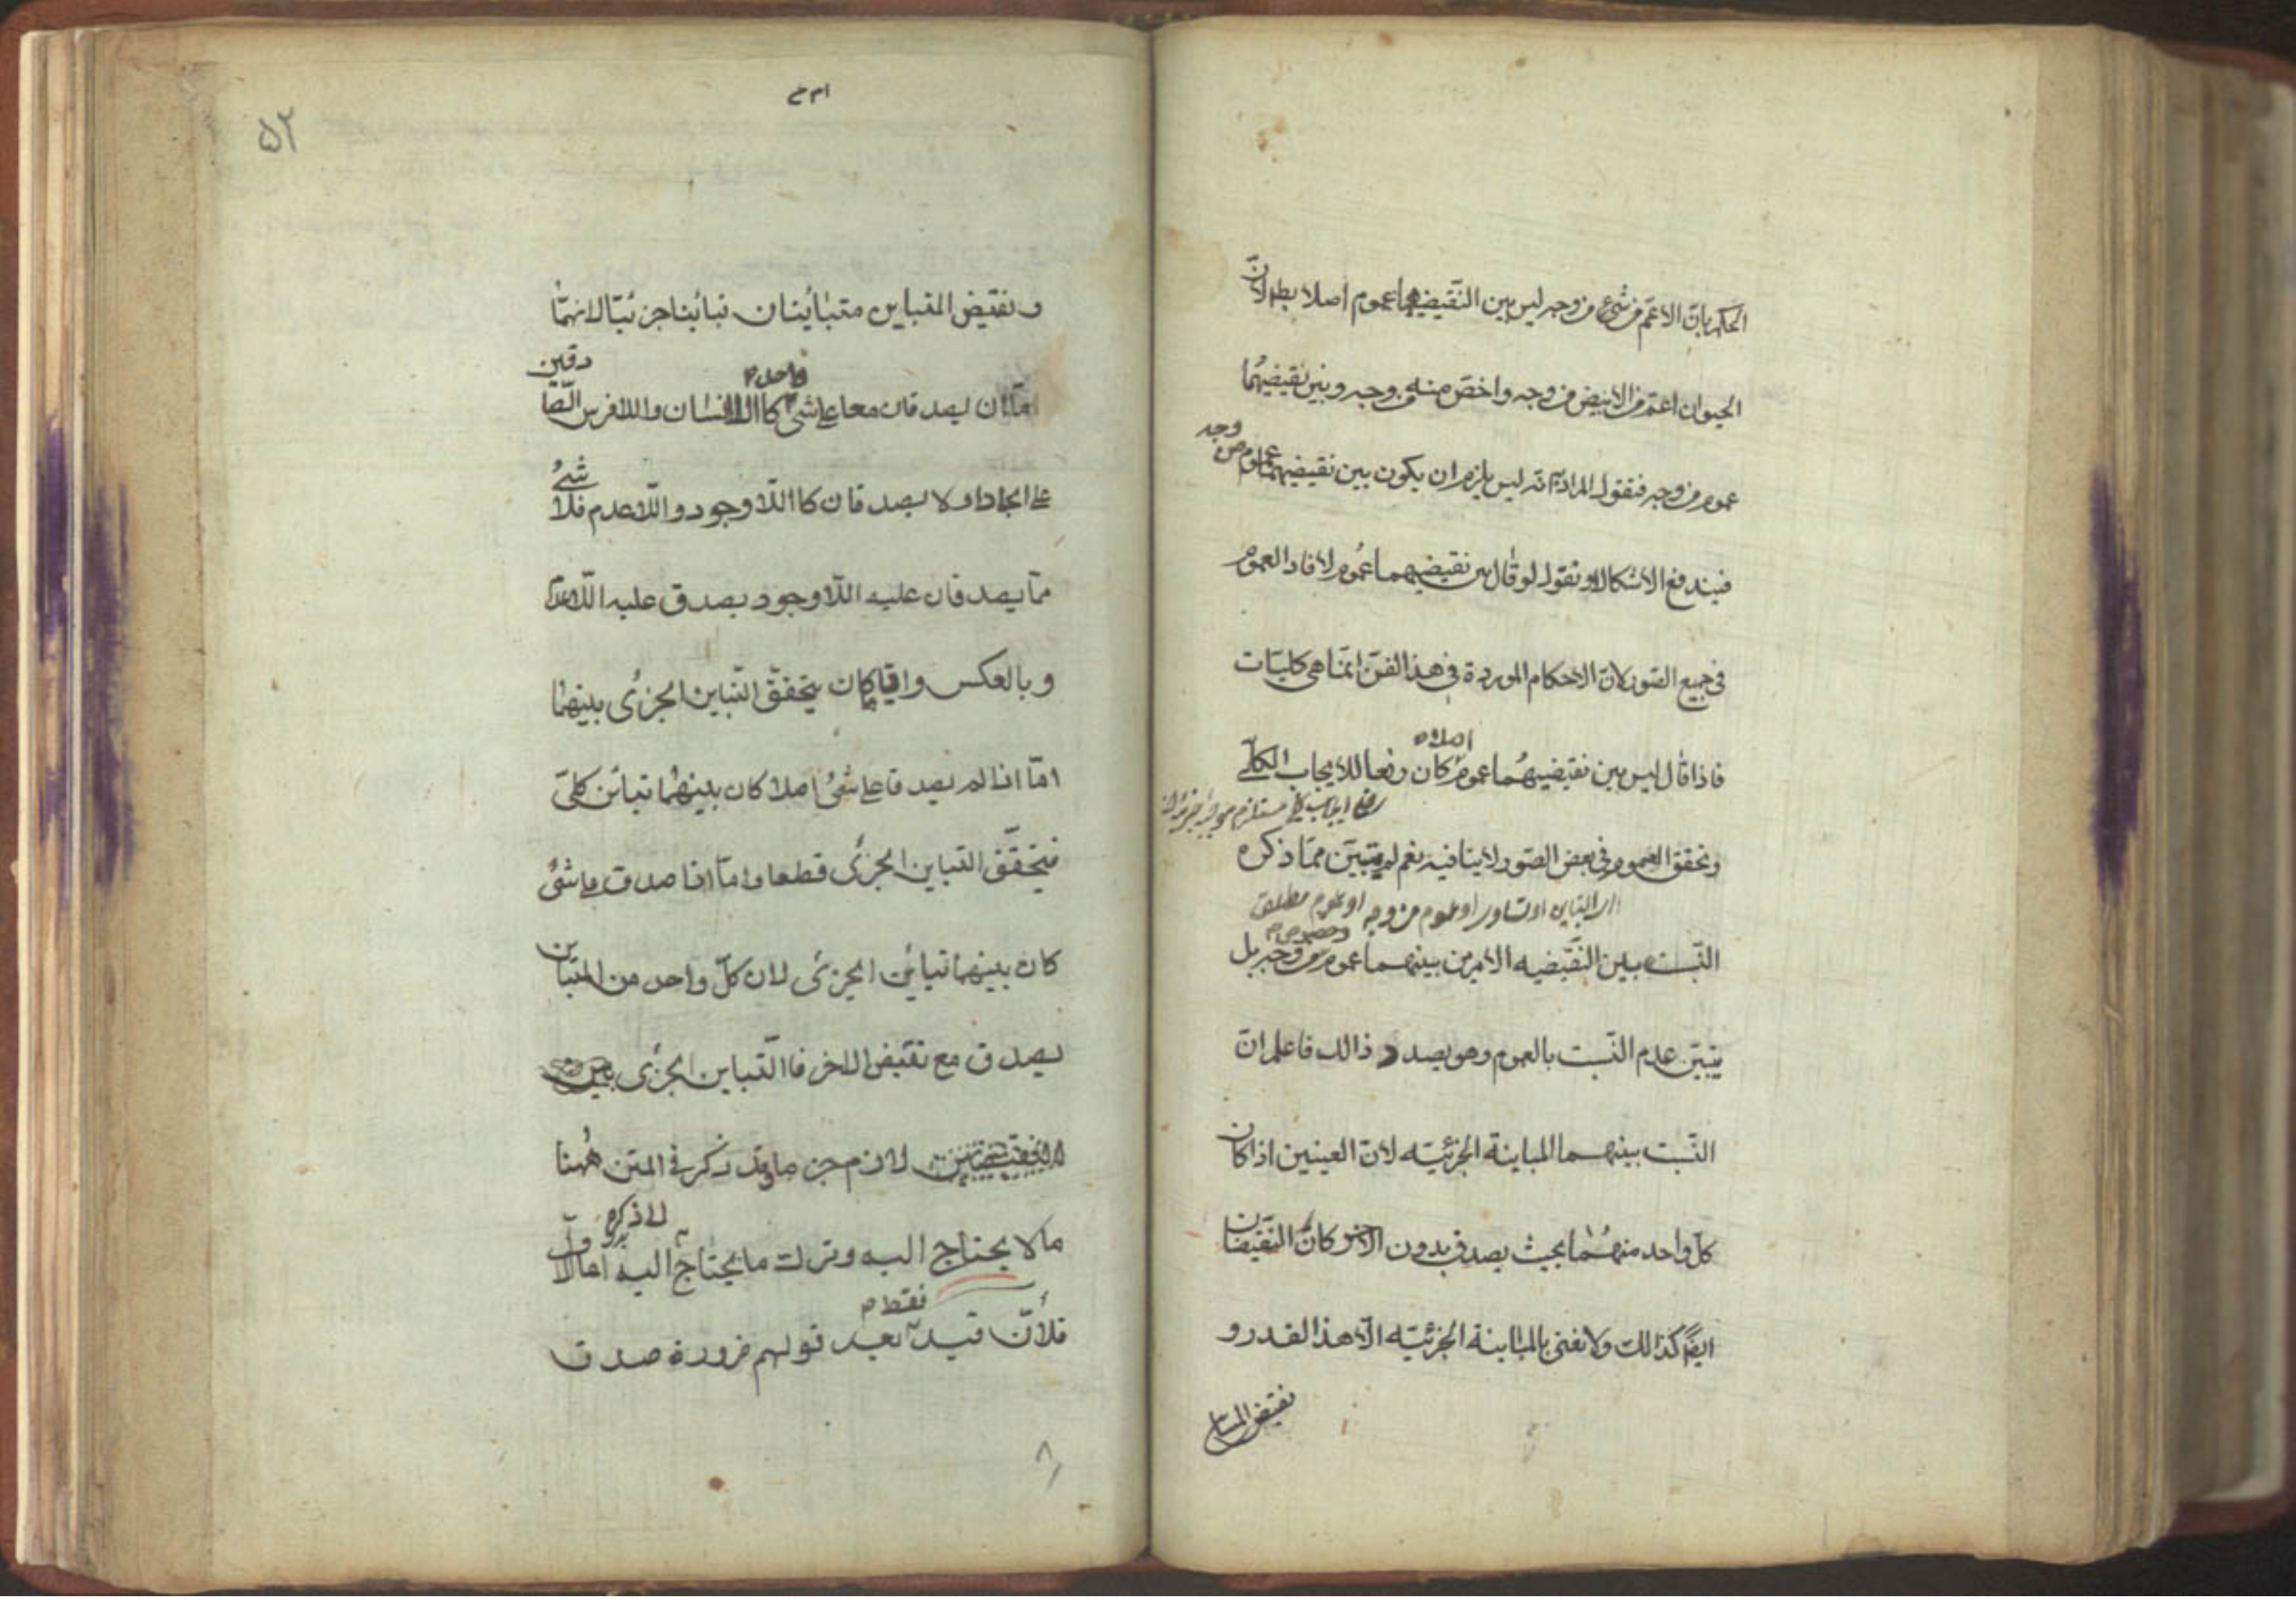 الحكم بان الاعم من شئ من وجه ليس بين النقيضيهما عموم اصلا بطل لانّ
الحيوان اعم من الابيض من وجه واخص منه من وجه وبين نقيضيهما
عموم من وجه فنقول المراد به انه ليس يلزم ان يكون بين نقيضيهما عموم من وجه
فيندفع الاشكال او نقول لو قال بين نقيضيهما عموم لافاد العموم
فى جميع الصور لان الاحكام الموردة فى هذا الفن انما هى كليات
اصلا
فاذا قال ليس بين نقيضيهما عموم كان رفعا للايجاب الكلّى
رفع ايجاب كلى مستلزم
وتحقق العموم فى بعض الصور لا ينافيه نعم لم يتبين مما ذكره
التباين او تساوى او عموم من وجه او عموم مطلق
وخصوص
النسب بين النقيضيه الامرين بينهما عموم من وجه بل
يتبين عدم النسب بالعموم وهو بصدد ذالك فاعلم انّ
النسب بينهما المباينة الجزئيه لان العينين اذا كان
كل واحد منهما بحيث يصدق بدون الاخر كان النقيضان
ايضا كذالك ولا نعنى بالمباينة الجزئيه الّا هذا القدر و
نقيض المتباين
۵۲
ونقيض المتباين متبائينان تبائنا جزئيّا لانهمّا
واحد
امّا ان يصدقان معا على شئ كا اللاانسان واللافرس الصّادقين
على الجماد او لا يصدقان كا اللّاوجود واللّاعدم فلا شئ
ممّا يصدقان عليه اللّاوجود يصدق عليه اللّاعدم
وبالعكس وايّا ما كان يتحقّق التّباين الجزئى بينهما
امّا اذا لم يصدقا على شئ اصلا كان بينهما تبائن كلىّ
فيتحقّق التباين الجزئى قطعا وامّا اذا صدق على شئ
كان بينهما تبائين الجزئى لان كلّ واحد من المتباين
يصدق مع نقيض الاخر فا التّباين الجزئى
لازم جزما وقد ذكر فى المتن ههنا
ما لا يحتاج اليه وترك ما يحتاج اليه امّا الاول
لا ذكره
فقط
فلأنّ قيد بعد قولهم ضرورة صدق